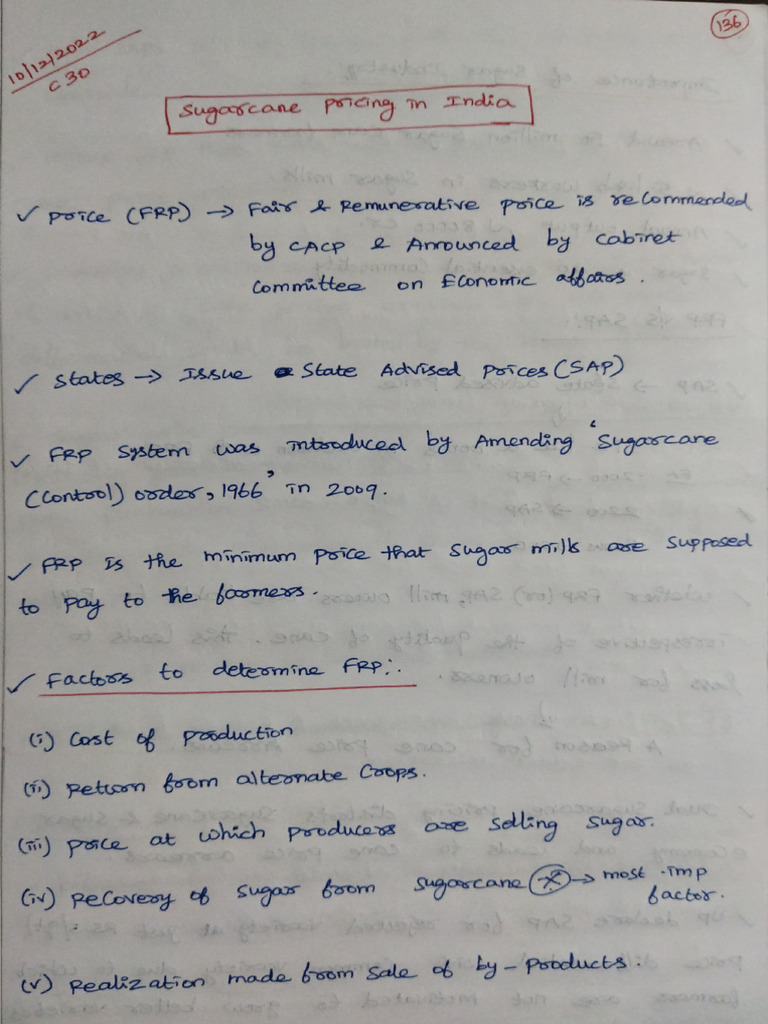 136
10/12/2022
C 30
Sugarcane pricing in India
✓ Price (FRP) → Fair & Remunerative price is recommended
by CACP & Announced by Cabinet
Committee on Economic affairs.
✓ States → Issue State Advised Prices (SAP)
✓ FRP System was introduced by Amending 'Sugarcane
(Control) order, 1966' in 2009.
✓ FRP is the minimum price that sugar mills are supposed
to pay to the farmers.
✓ Factors to determine FRP:.
(i) Cost of production
(ii) Return from alternate Crops.
(iii) Price at which producers are selling sugar.
(iv) Recovery of sugar from sugarcane (*) → most imp
factor.
(v) Realization made from sale of by-products.